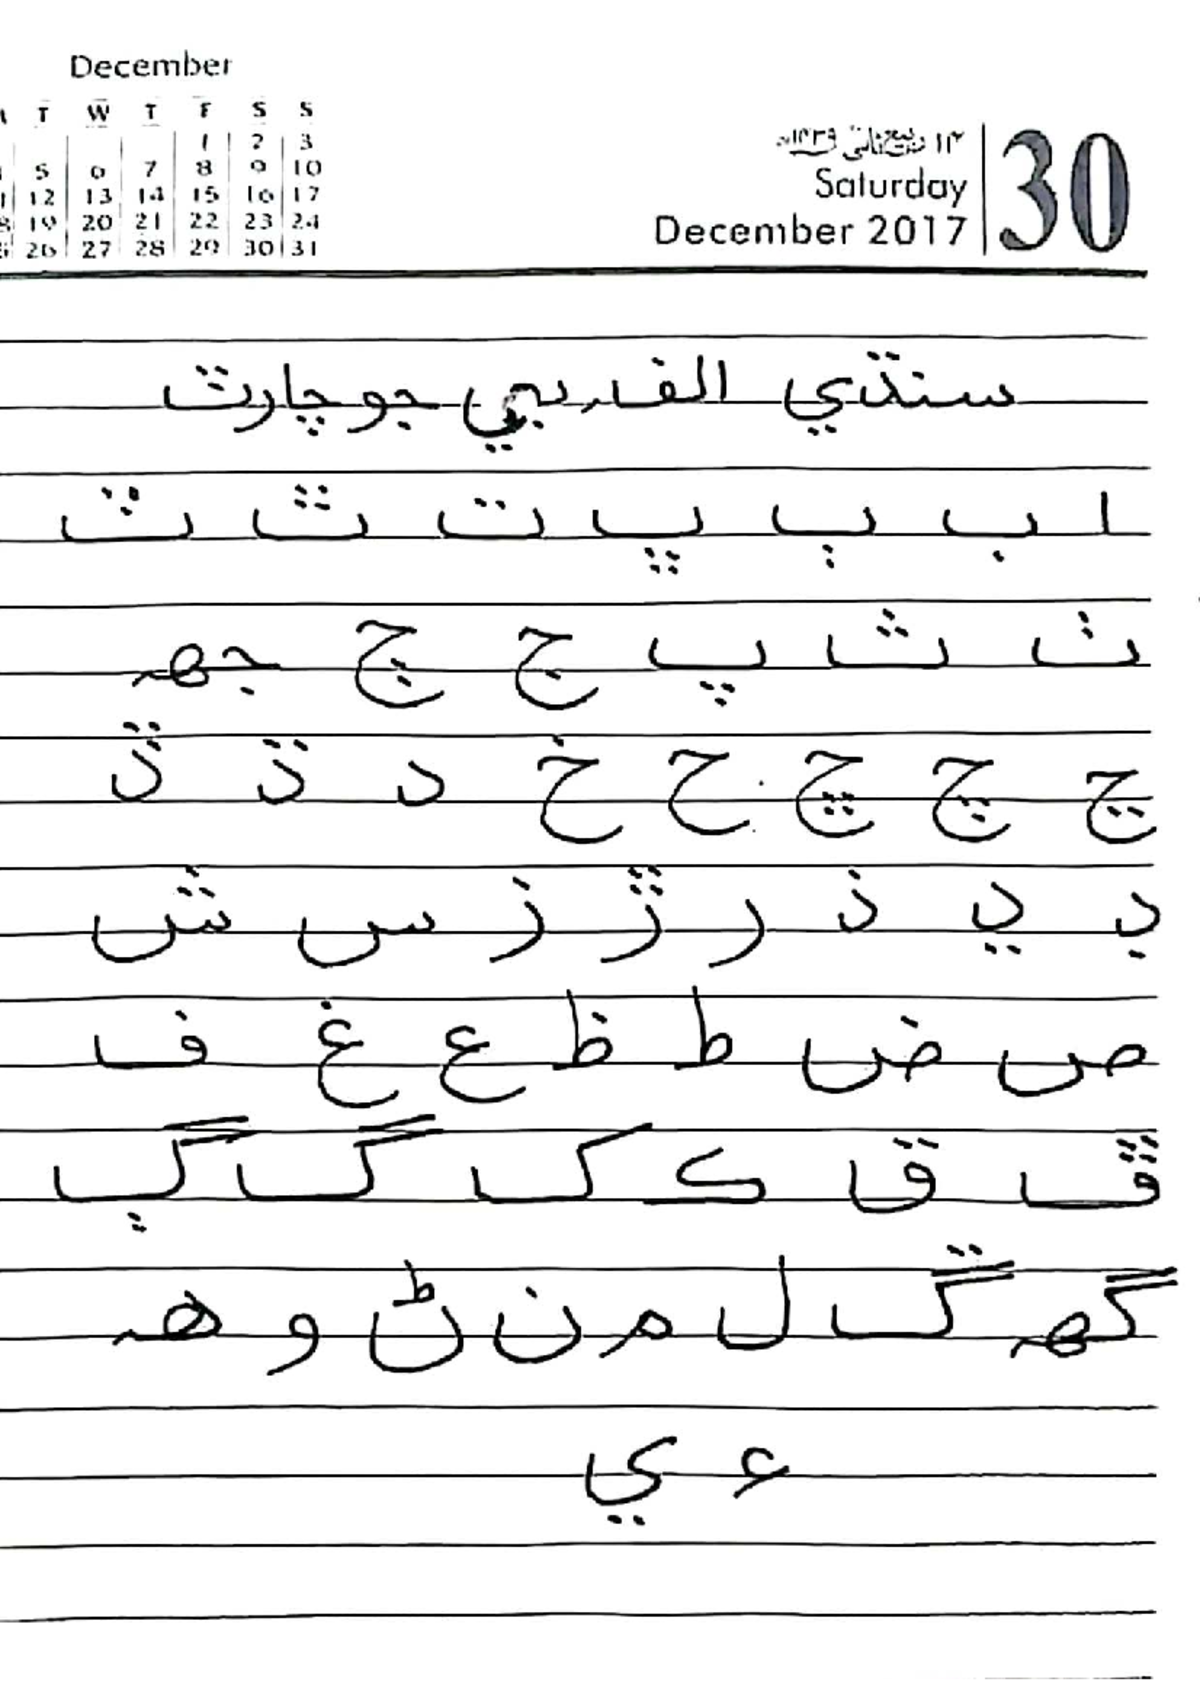 December
T W T F S S
1 2 3
5 6 7 8 9 10
12 13 14 15 16 17
19 20 21 22 23 24
26 27 28 29 30 31
۱۲ ربیع ثانی ۱۴۳۹ھ
Saturday
December 2017
30
سنڌي الف۔بي جو چارٽ
ا ب ٻ ڀ ت ٿ ٽ
ٺ ث پ ج ڄ جهہ
ڃ چ ڇ ح خ د ڌ ڏ
ڊ ڍ ذ ر ڙ ز س ش
ص ض ط ظ ع غ ف
ڦ ق ڪ ک گ ڳ
گهہ ڱ ل م ن ڻ و هہ
ء ي